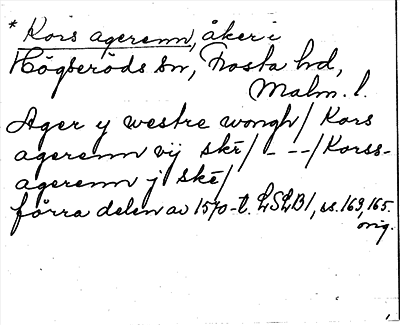 * Kors agerenn, åker i
Högseröds sn, Frosta hd,
Malm. l.
Ager y westre wongh / Kors
agerenn vij skē / - - - / Korss-
agerenn j skē /
förra delen av 1570-t. LSLB 1, ss. 163, 165.
orig.